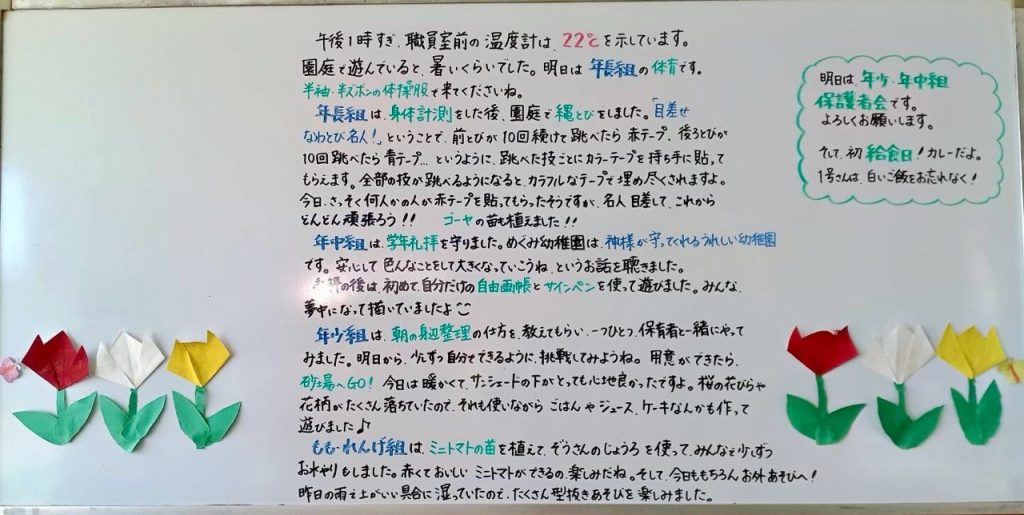 午後1時すぎ、職員室前の温度計は、22℃を示しています。
園庭で遊んでいると、暑いくらいでした。明日は年長組の体育です。
半袖・半ズボンの体操服で来てくださいね。
年長組は、身体計測をした後、園庭で縄とびをしました。「目差せ
なわとび名人!」ということで、前とびが10回続けて跳べたら赤テープ、後ろとびが
10回跳べたら青テープ…というように、跳べた技ごとにカラーテープを持ち手に貼って
もらえます。全部の技が跳べるようになると、カラフルなテープで埋め尽くされますよ。
今日、さっそく何人かの人が赤テープを貼ってもらったそうですが、名人目差して、これから
どんどん頑張ろう!! ゴーヤの苗も植えました!!
年中組は、学年礼拝を守りました。めぐみ幼稚園は、神様が守ってくれるうれしい幼稚園
です。安心して色んなことをして大きくなっていこうね、というお話を聴きました。
の後は、初めて、自分だけの自由画帳とサインペンを使って遊びました。みんな、
夢中になって描いていましたよ
年少組は、朝の身辺整理の仕方を教えてもらい、一つひとつ、保育者と一緒にやって
みました。明日から、少しずつ自分でできるように、挑戦してみようね。用意ができたら、
砂場へGO! 今日は暖かくて、サンシェードの下がとっても心地良かったですよ。桜の花びらや
花柄がたくさん落ちていたので、それも使いながらごはんやジュース、ケーキなんかも作って
遊びました♪
もも・れんげ組は、ミニトマトの苗を植えて、ぞうさんのじょうろを使って、みんなで少しずつ
お水やりもしました。赤くておいしいミニトマトができるの、楽しみだね。そして、今日ももちろんお外あそびへ!
昨日の雨で土がいい具合に湿っていたので、たくさん型抜きあそびを楽しみました。
明日は、年少・年中組
保護者会です。
よろしくお願いします。
そして、初給食日!カレーだよ。
1号さんは、白いご飯をお忘れなく!